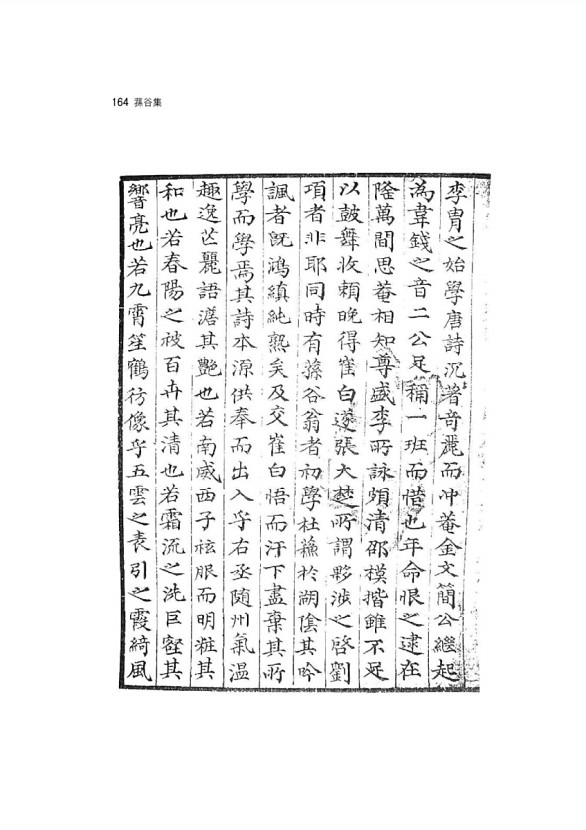 164 蓀谷集
李冑之始學唐詩沉著奇麗而冲菴金文簡公繼起
為韋錢之音二公足稱一班而惜也年命恨之逮在
隆萬間思菴相知尊盛李所詠頗清邵模揩雖不足
以鼓舞收頼晚得崔白遂張大楚所謂夥涉之啓劉
項者非耶同時有蓀谷翁者初學杜蘓於湖陰其吟
諷者旣鴻縝純熟矣及交崔白悟而汗下盡棄其所
學而學焉其詩本源供奉而出入乎右丞隨州氣温
趣逸芒麗語澹其艷也若南威西子袨服而明粧其
和也若春陽之被百卉其清也若霜流之洗巨壑其
響亮也若九霄笙鶴彷像乎五雲之表引之霞綺風